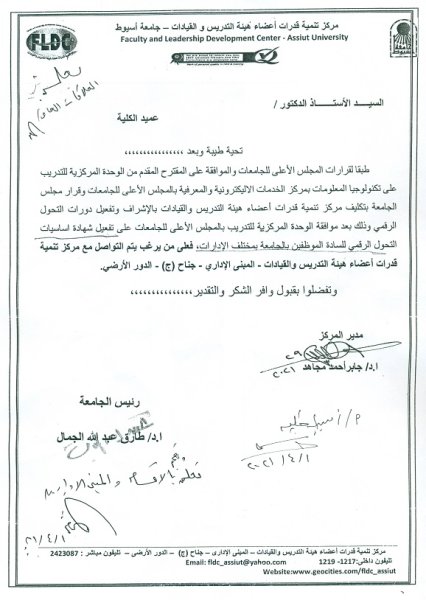 مركز تنمية قدرات أعضاء هيئة التدريس و القيادات – جامعة أسيوط
Faculty and Leadership Development Center - Assiut University
FLDC
السيد الأستاذ الدكتور /
عميد الكلية
تحية طيبة وبعد ,,,,,,,,,,,,,,,,
طبقا لقرارات المجلس الأعلى للجامعات والموافقة على المقترح المقدم من الوحدة المركزية للتدريب
على تكنولوجيا المعلومات بمركز الخدمات الاليكترونية والمعرفية بالمجلس الأعلى للجامعات وقرار مجلس
الجامعة بتكليف مركز تنمية قدرات أعضاء هيئة التدريس والقيادات بالإشراف وتفعيل دورات التحول
الرقمي وذلك بعد موافقة الوحدة المركزية للتدريب بالمجلس الأعلى للجامعات على تفعيل شهادة اساسيات
التحول الرقمي للسادة الموظفين بالجامعة بمختلف الإدارات، فعلى من يرغب يتم التواصل مع مركز تنمية
قدرات أعضاء هيئة التدريس والقيادات - المبنى الإداري - جناح (ج) - الدور الأرضي.
وتفضلوا بقبول وافر الشكر والتقدير ,,,,,,,,,,,,,,
مدير المركز
٢٩
٢٠٢١
ا.د/ جابر أحمد مجاهد
رئيس الجامعة
ا.د/ طارق عبد الله الجمال
٢٠٢١/٤/١
٢١/٤/١
مركز تنمية قدرات أعضاء هيئة التدريس والقيادات – المبنى الإدارى – جناح (ج) – الدور الأرضى – تليفون مباشر : 2423087
تليفون داخلى: 1217- 1219
Email: fldc_assiut@yahoo.com
Website:www.geocities.com/fldc_assiut